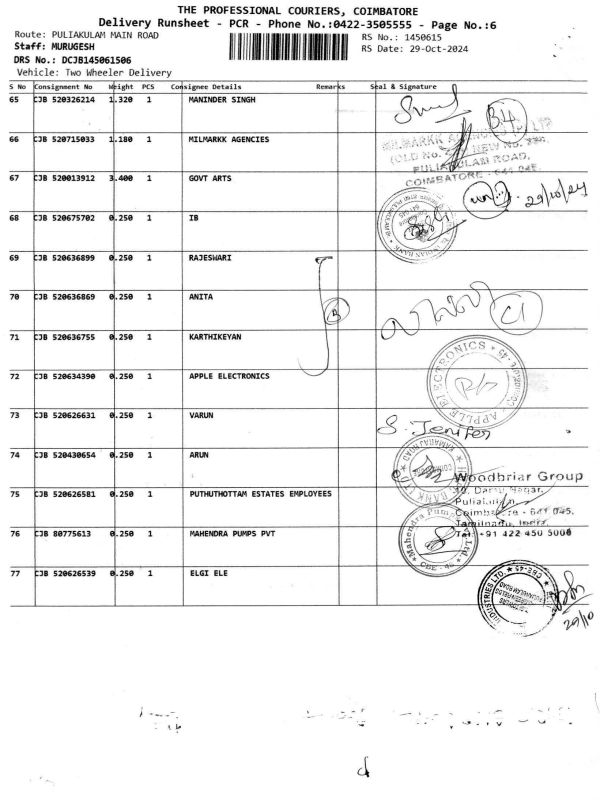 THE PROFESSIONAL COURIERS, COIMBATORE
Delivery Runsheet - PCR - Phone No.:0422-3505555 - Page No.:6
Route: PULIAKULAM MAIN ROAD RS No.: 1450615
Staff: MURUGESH RS Date: 29-Oct-2024
DRS No.: DCJB145061506
Vehicle: Two Wheeler Delivery
S No Consignment No Weight PCS Consignee Details Remarks Seal & Signature
65 CJB 520326214 1.320 1 MANINDER SINGH
66 CJB 520715033 1.180 1 MILMARKK AGENCIES
PULIAKULAM ROAD,
COIMBATORE - 641 045.
67 CJB 520013912 3.400 1 GOVT ARTS
29/10/24
68 CJB 520675702 0.250 1 IB
INDIAN BANK
69 CJB 520636899 0.250 1 RAJESWARI
70 CJB 520636869 0.250 1 ANITA
C1
71 CJB 520636755 0.250 1 KARTHIKEYAN
72 CJB 520634390 0.250 1 APPLE ELECTRONICS
APPLE ELECTRONICS
73 CJB 520626631 0.250 1 VARUN
S. Jenifer
74 CJB 520430654 0.250 1 ARUN
Woodbriar Group
75 CJB 520626581 0.250 1 PUTHUTHOTTAM ESTATES EMPLOYEES
Coimbatore - 641 045.
Tamilnadu, India.
76 CJB 80775613 0.250 1 MAHENDRA PUMPS PVT
Tel: +91 422 450 5000
Mahendra Pumps Pvt. Ltd.
CBE - 45
77 CJB 520626539 0.250 1 ELGI ELE
INDUSTRIES LTD
CBE-45
29/10